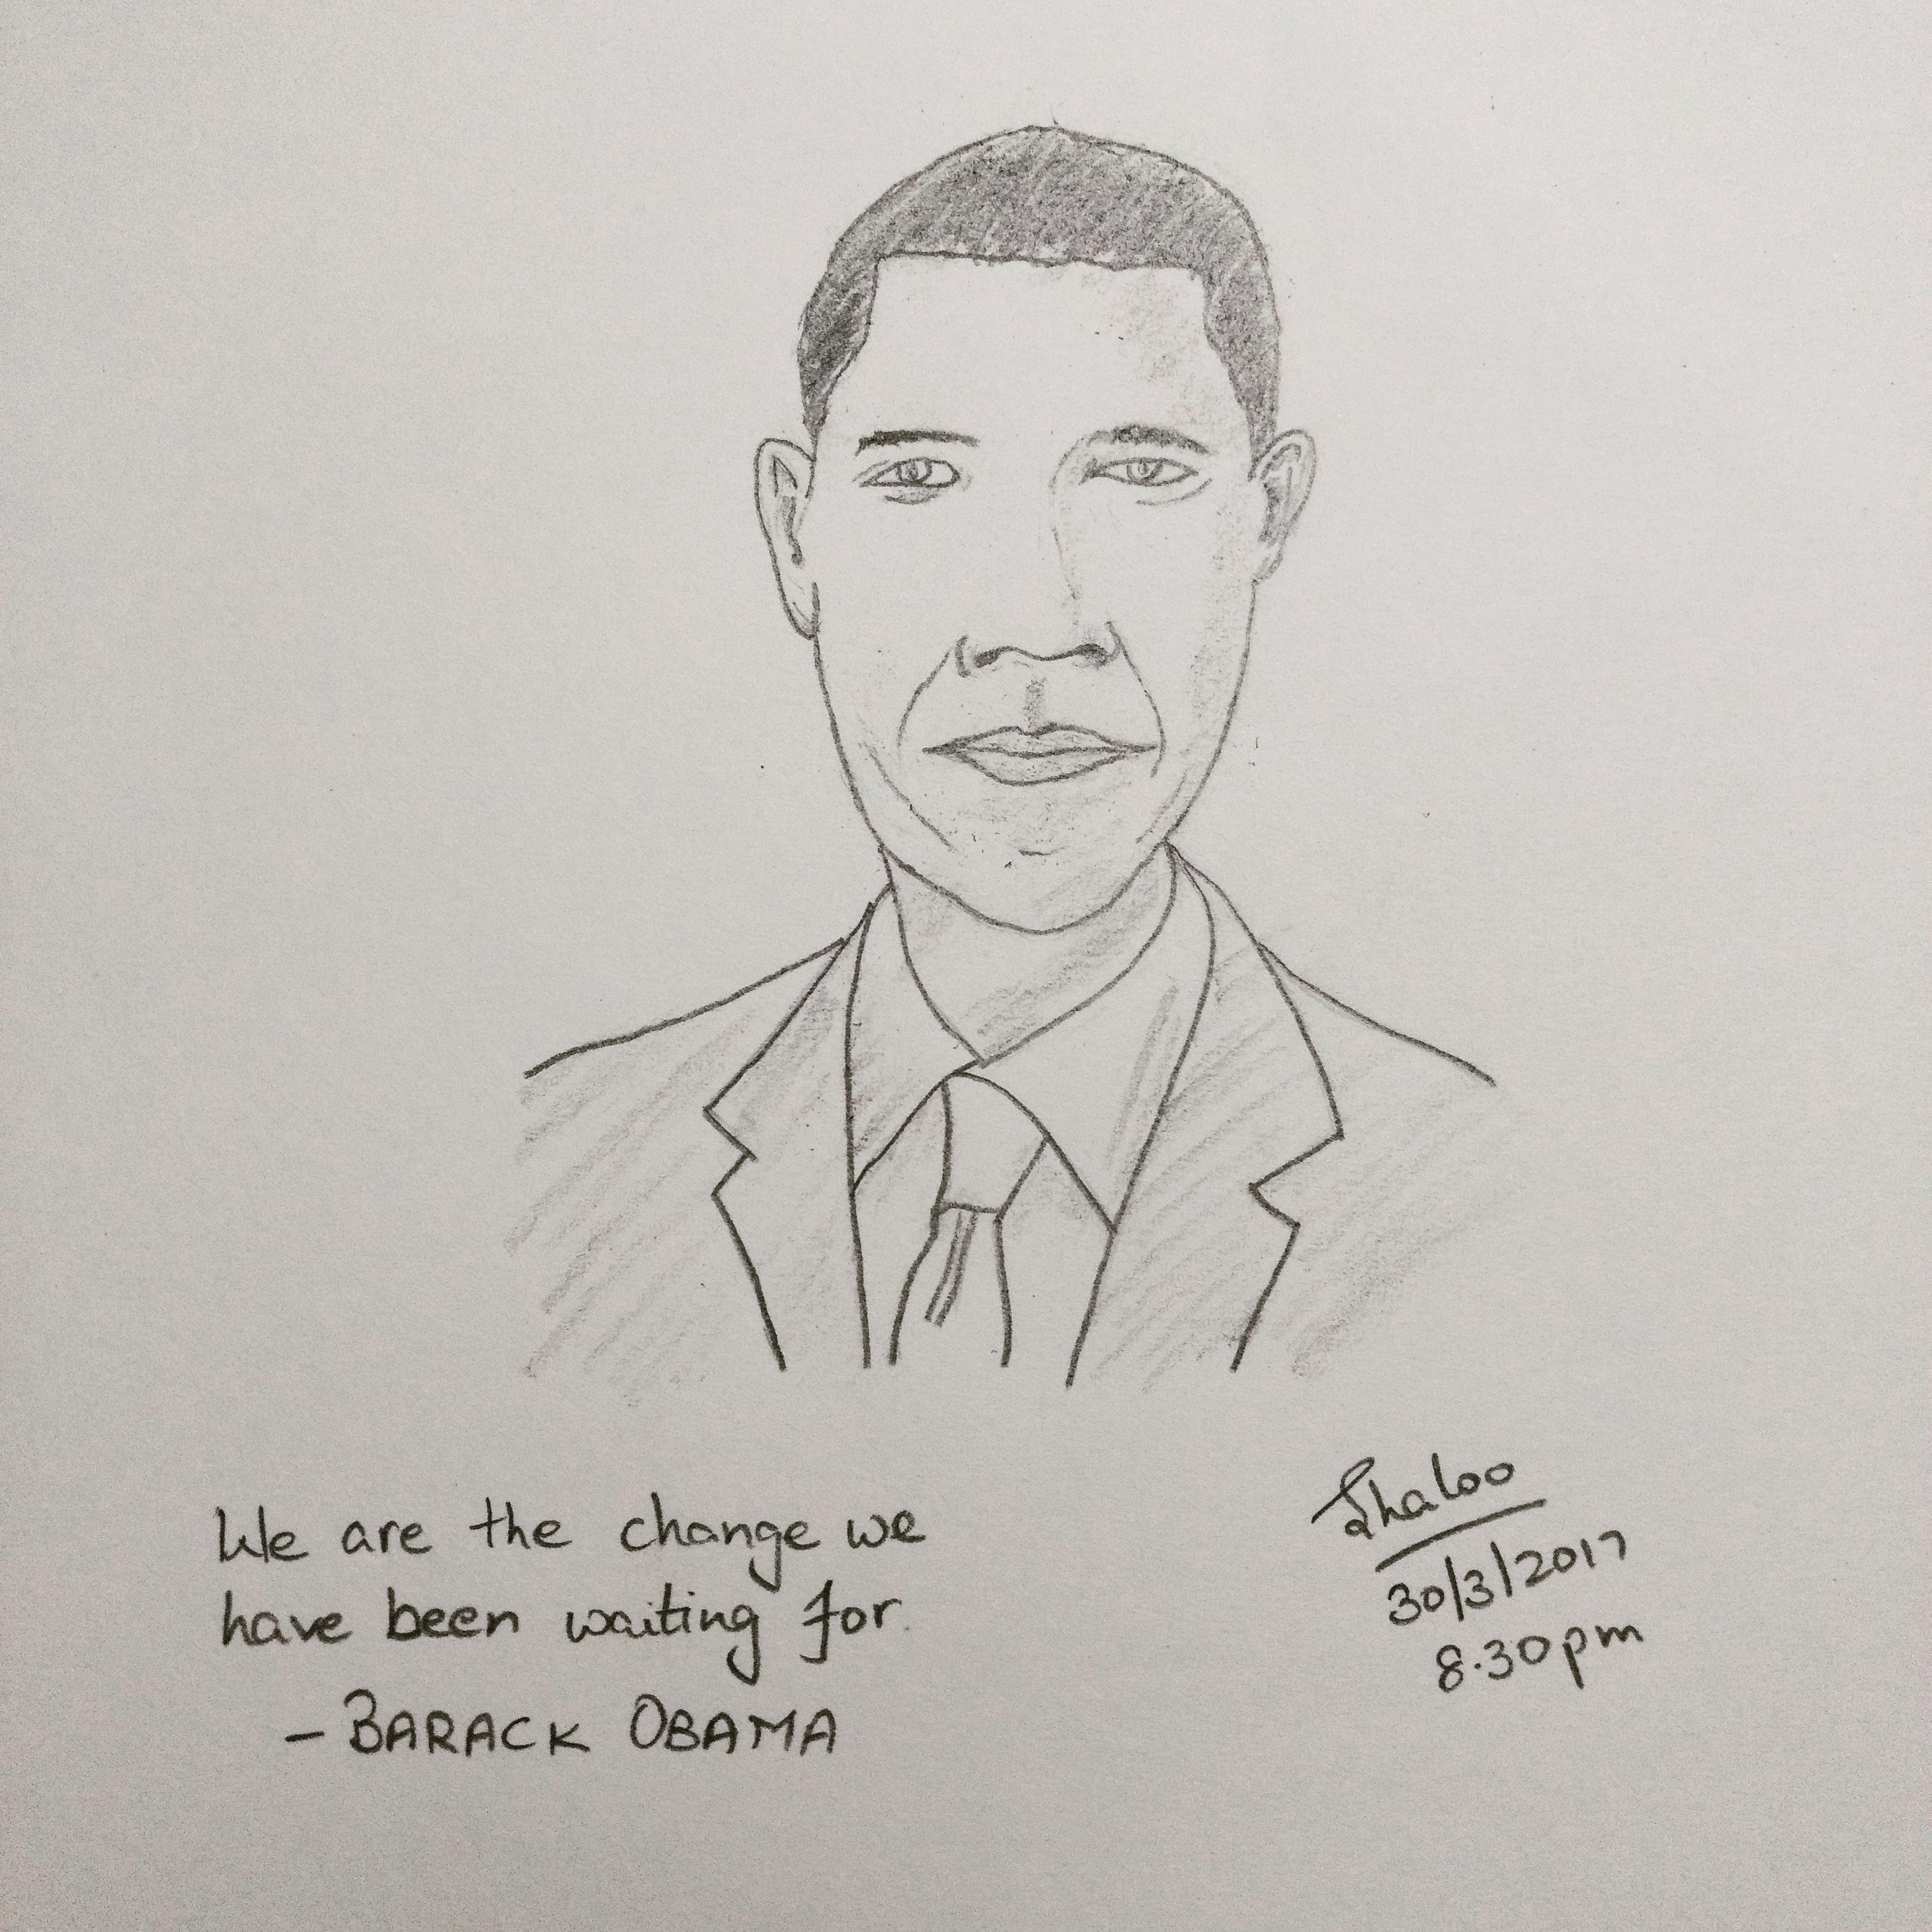 We are the change we
have been waiting for.
- BARACK OBAMA
30/3/2017
8.30pm